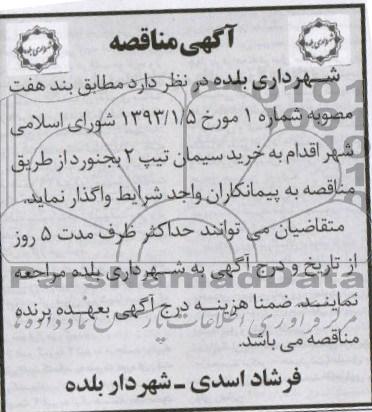 آگهی مناقصه
شهرداری بلده
شهرداری بلده
شهرداری بلده در نظر دارد مطابق بند هفت
مصوبه شماره ۱ مورخ ۱۳۹۳/۱/۵ شورای اسلامی
شهر اقدام به خرید سیمان تیپ ۲ بجنورد از طریق
مناقصه به پیمانکاران واجد شرایط واگذار نماید.
متقاضیان می توانند حداکثر ظرف مدت ۵ روز
از تاریخ و درج آگهی به شهرداری بلده مراجعه
نمایند. ضمنا هزینه درج آگهی بعهده برنده
مناقصه می باشد.
فرشاد اسدی - شهردار بلده
ParsNamadData
مرکز فرآوری اطلاعات پارس نماد داده ها